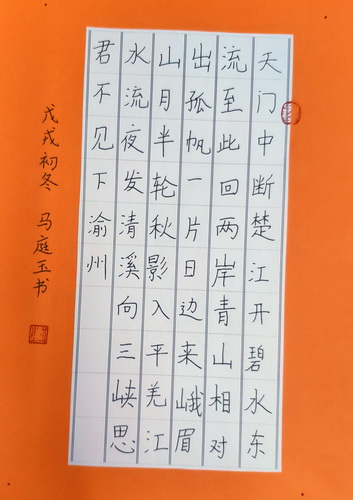 天门中断楚江开碧水东
流至此回两岸青山相对
出孤帆一片日边来峨眉
山月半轮秋影入平羌江
水流夜发清溪向三峡思
君不见下渝州
戊戌初冬 马庭玉书